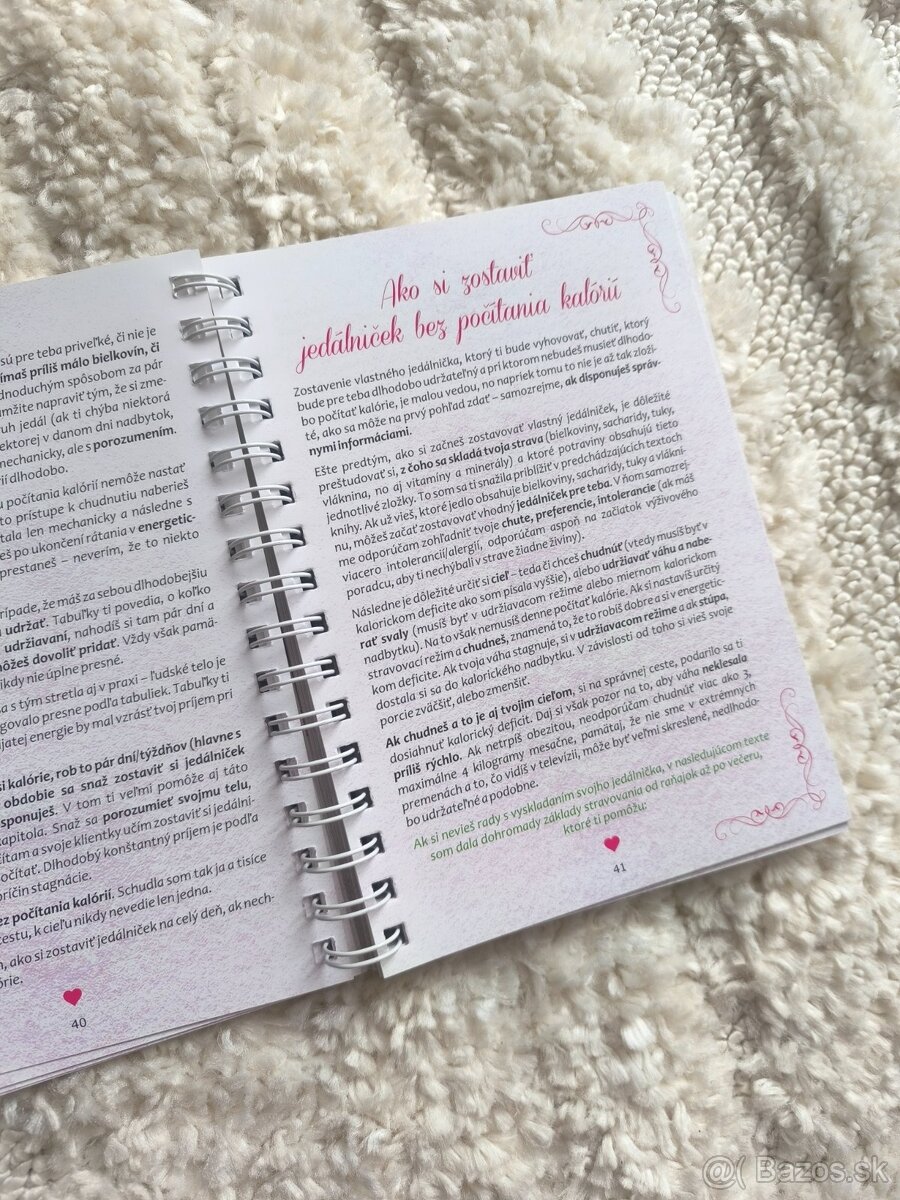 sú pre teba priveľké, či nie je
ímaš príliš málo bielkovín, či
dnoduchým spôsobom za pár
umžite napraviť tým, že si zme-
ruh jedál (ak ti chýba niektorá
ektorej v danom dni nadbytok,
mechanicky, ale s porozumením.
ií dlhodobo.
u počítania kalórií nemôže nastať
to prístupe k chudnutiu naberieš
tala len mechanicky a následne s
eš po ukončení rátania v energetic-
prestaneš – neverím, že to niekto
rípade, že máš za sebou dlhodobejšiu
udržať. Tabuľky ti povedia, o koľko
udržiavaní, nahodíš si tam pár dní a
ôžeš dovoliť pridať. Vždy však pamä-
ikdy nie úplne presné.
a s tým stretla aj v praxi – ľudské telo je
govalo presne podľa tabuliek. Tabuľky ti
ijatej energie by mal vzrásť tvoj príjem pri
si kalórie, rob to pár dní/týždňov (hlavne s
obdobie sa snaž zostaviť si jedálniček
sponuješ. V tom ti veľmi pomôže aj táto
kapitola. Snaž sa porozumieť svojmu telu,
čítam a svoje klientky učím zostaviť si jedálni-
očítať. Dlhodobý konštantný príjem je podľa
príčin stagnácie.
ez počítania kalórií. Schudla som tak ja a tisíce
cestu, k cieľu nikdy nevedie len jedna.
n, ako si zostaviť jedálniček na celý deň, ak nech-
órie.
40
Ako si zostaviť
jedálniček bez počítania kalórií
Zostavenie vlastného jedálnička, ktorý ti bude vyhovovať, chutiť, ktorý
bude pre teba dlhodobo udržateľný a pri ktorom nebudeš musieť dlhodo-
bo počítať kalórie, je malou vedou, no napriek tomu to nie je až tak zloži-
té, ako sa môže na prvý pohľad zdať – samozrejme, ak disponuješ správ-
nymi informáciami.
Ešte predtým, ako si začneš zostavovať vlastný jedálniček, je dôležité
preštudovať si, z čoho sa skladá tvoja strava (bielkoviny, sacharidy, tuky,
vláknina, no aj vitamíny a minerály) a ktoré potraviny obsahujú tieto
jednotlivé zložky. To som sa ti snažila priblížiť v predchádzajúcich textoch
knihy. Ak už vieš, ktoré jedlo obsahuje bielkoviny, sacharidy, tuky a vlákni-
nu, môžeš začať zostavovať vhodný jedálniček pre teba. V ňom samozrej-
me odporúčam zohľadniť tvoje chute, preferencie, intolerancie (ak máš
viacero intolerancií/alergií, odporúčam aspoň na začiatok výživového
poradcu, aby ti nechýbali v strave žiadne živiny).
Následne je dôležité určiť si cieľ – teda či chceš chudnúť (vtedy musíš byť v
kalorickom deficite ako som písala vyššie), alebo udržiavať váhu a nabe-
rať svaly (musíš byť v udržiavacom režime alebo miernom kalorickom
nadbytku). Na to však nemusíš denne počítať kalórie. Ak si nastavíš určitý
stravovací režim a chudneš, znamená to, že to robíš dobre a si v energetic-
kom deficite. Ak tvoja váha stagnuje, si v udržiavacom režime a ak stúpa,
dostala si sa do kalorického nadbytku. V závislosti od toho si vieš svoje
porcie zväčšiť, alebo zmenšiť.
Ak chudneš a to je aj tvojim cieľom, si na správnej ceste, podarilo sa ti
dosiahnuť kalorický deficit. Daj si však pozor na to, aby váha neklesala
príliš rýchlo. Ak netrpíš obezitou, neodporúčam chudnúť viac ako 3,
maximálne 4 kilogramy mesačne, pamätaj, že nie sme v extrémnych
premenách a to, čo vidíš v televízii, môže byť veľmi skreslené, nedlhodo-
bo udržateľné a podobne.
Ak si nevieš rady s vyskladaním svojho jedálnička, v nasledujúcom texte
som dala dohromady základy stravovania od raňajok až po večeru,
ktoré ti pomôžu:
41
@( Bazos.sk